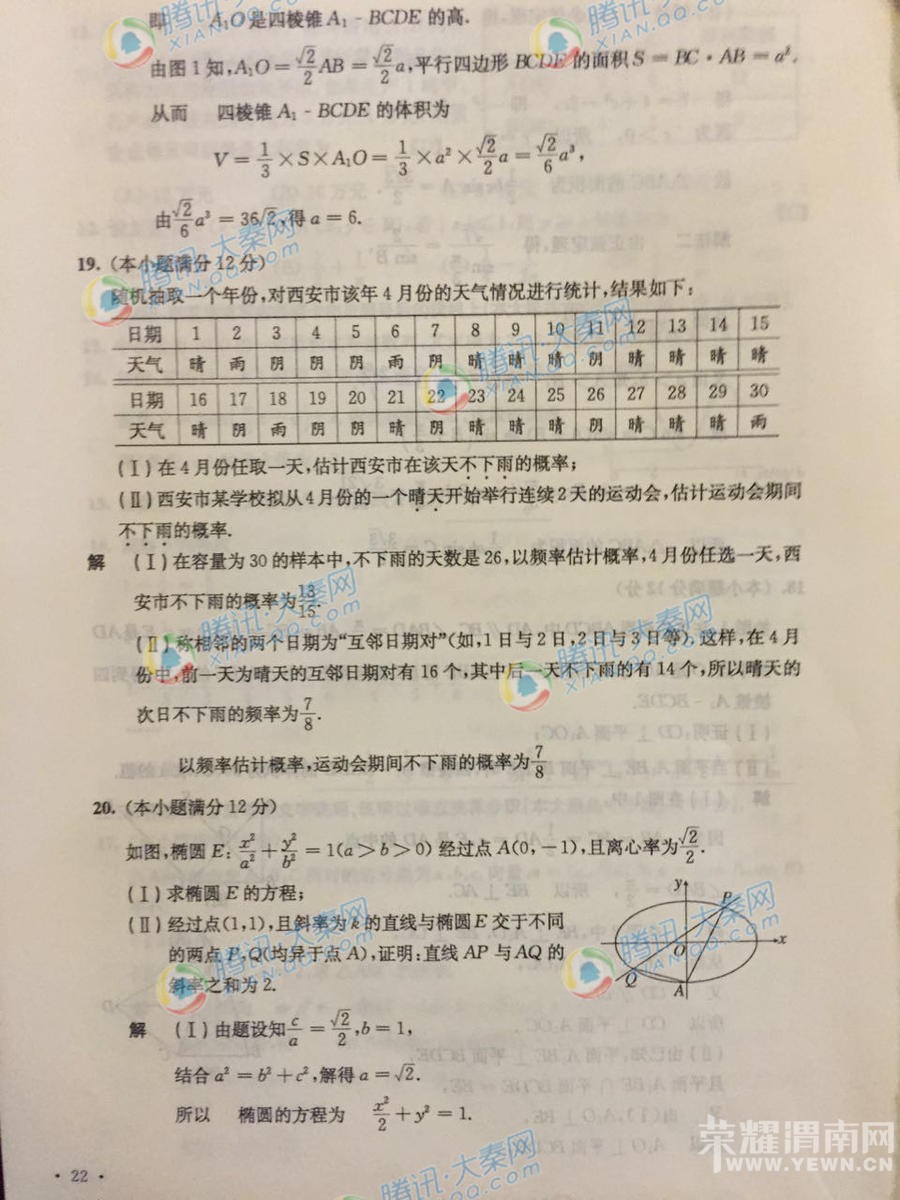 即 A₁O是四棱锥A₁-BCDE的高.
由图1知,A₁O=√2/2AB=√2/2a,平行四边形BCDE的面积S=BC·AB=a².
从而 四棱锥A₁-BCDE的体积为
V=1/3×S×A₁O=1/3×a²×√2/2a=√2/6a³,
由√2/6a³=36√2,得a=6.
19.(本小题满分12分)
随机抽取一个年份,对西安市该年4月份的天气情况进行统计,结果如下:
日期 1 2 3 4 5 6 7 8 9 10 11 12 13 14 15
天气 晴 雨 阴 阴 阴 雨 阴 晴 晴 晴 阴 晴 晴 晴 晴
日期 16 17 18 19 20 21 22 23 24 25 26 27 28 29 30
天气 晴 阴 雨 阴 阴 晴 阴 晴 晴 晴 阴 晴 晴 晴 雨
(Ⅰ)在4月份任取一天,估计西安市在该天不下雨的概率;
(Ⅱ)西安市某学校拟从4月份的一个晴天开始举行连续2天的运动会,估计运动会期间
不下雨的概率.
解 (Ⅰ)在容量为30的样本中,不下雨的天数是26,以频率估计概率,4月份任选一天,西
安市不下雨的概率为13/15.
(Ⅱ)称相邻的两个日期为“互邻日期对”(如,1日与2日,2日与3日等).这样,在4月
份中,前一天为晴天的互邻日期对有16个,其中后一天不下雨的有14个,所以晴天的
次日不下雨的频率为7/8.
以频率估计概率,运动会期间不下雨的概率为7/8
20.(本小题满分12分)
如图,椭圆E:x²/a²+y²/b²=1(a>b>0)经过点A(0,-1),且离心率为√2/2.
(Ⅰ)求椭圆E的方程;
(Ⅱ)经过点(1,1),且斜率为k的直线与椭圆E交于不同
的两点P,Q(均异于点A),证明:直线AP与AQ的
斜率之和为2.
y
P
O
x
Q
A
解 (Ⅰ)由题设知c/a=√2/2,b=1,
结合a²=b²+c²,解得a=√2.
所以 椭圆的方程为 x²/2+y²=1.
·22·
腾讯·大秦网
XIAN.QQ.COM
荣耀渭南网
WWW.YEWN.CN